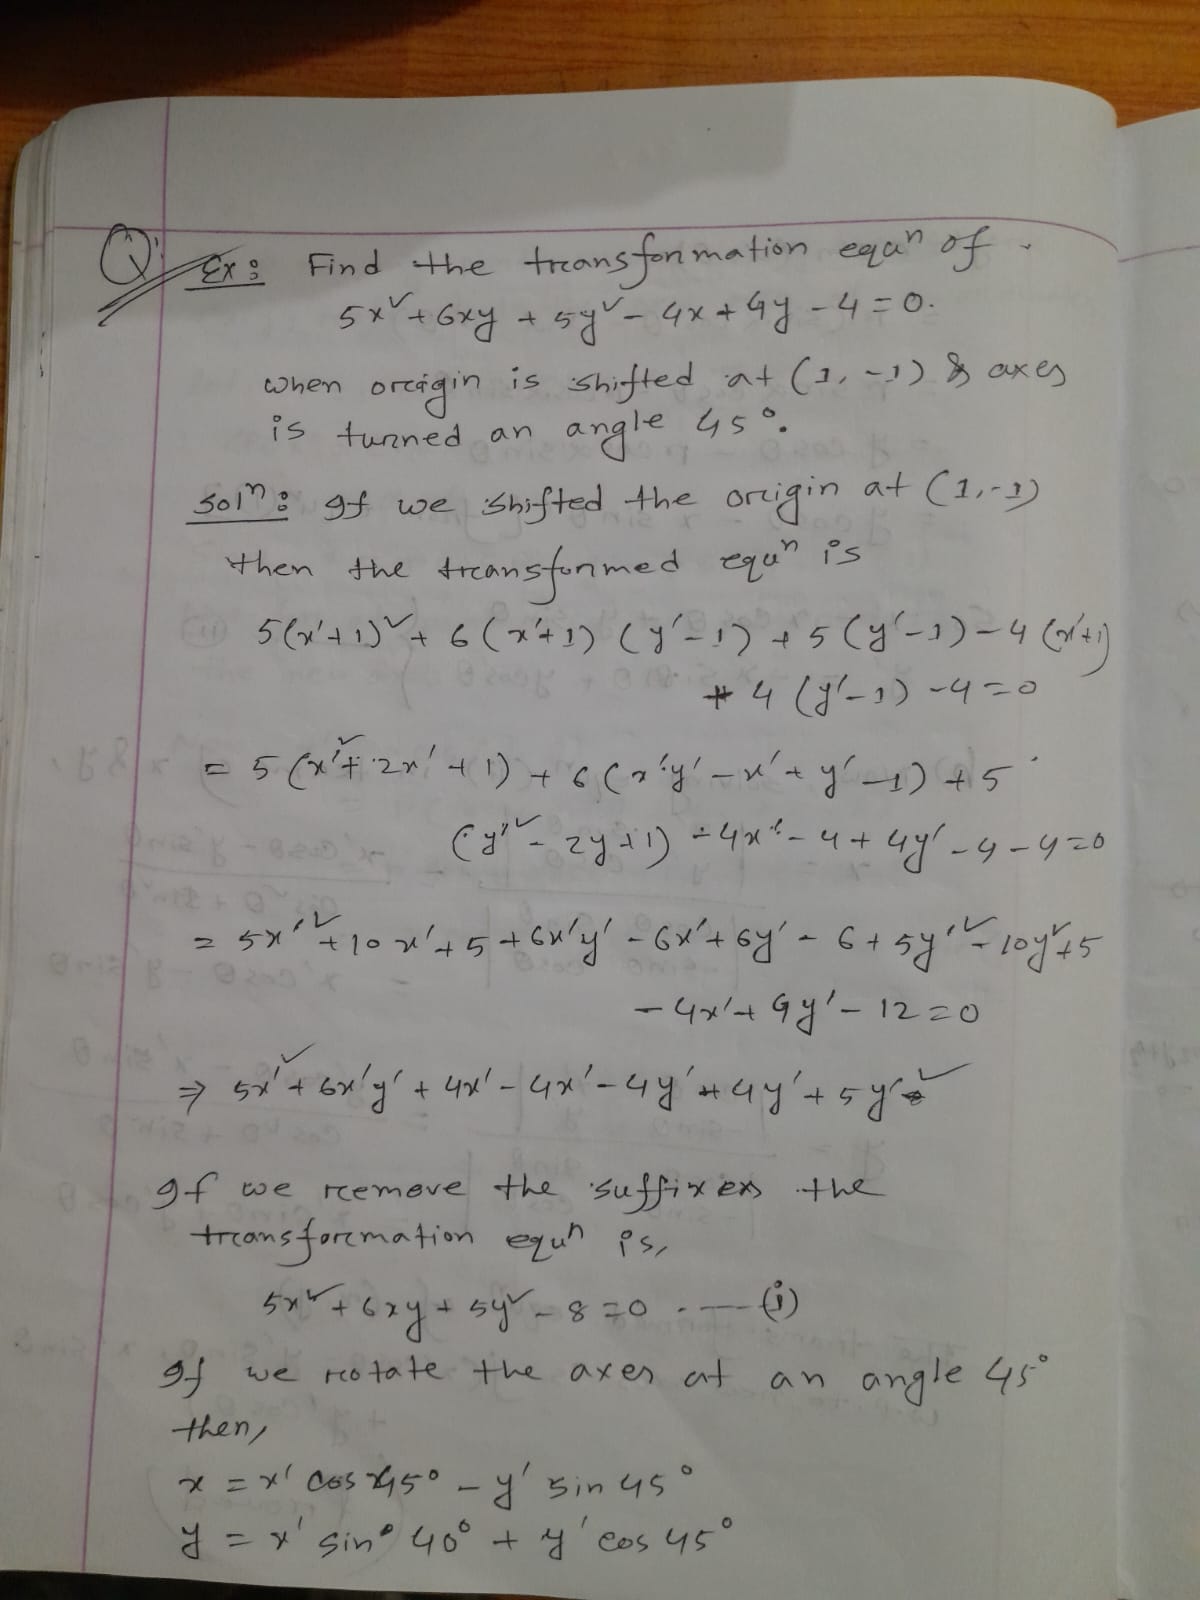 Q.
Ex: Find the transformation equⁿ of
5x² + 6xy + 5y² - 4x + 4y - 4 = 0.
when origin is shifted at (1, -1) & axes
is turned an angle 45°.
Solⁿ: If we shifted the origin at (1, -1)
then the transformed equⁿ is
5(x'+1)² + 6(x'+1)(y'-1) + 5(y'-1) - 4(x'+1)
+ 4(y'-1) - 4 = 0
= 5(x'² + 2x' + 1) + 6(x'y' - x' + y' - 1) + 5
(y'² - 2y + 1) - 4x' - 4 + 4y' - 4 - 4 = 0
= 5x'² + 10x' + 5 + 6x'y' - 6x' + 6y' - 6 + 5y'² - 10y' + 5
- 4x' + 4y' - 12 = 0
⇒ 5x'² + 6x'y' + 4x' - 4x' - 4y' + 4y' + 5y'²
If we remove the suffixes the
transformation equⁿ is,
5x² + 6xy + 5y² - 8 = 0 ---- (i)
If we rotate the axes at an angle 45°
then,
x = x' cos 45° - y' sin 45°
y = x' sin° 40° + y' cos 45°